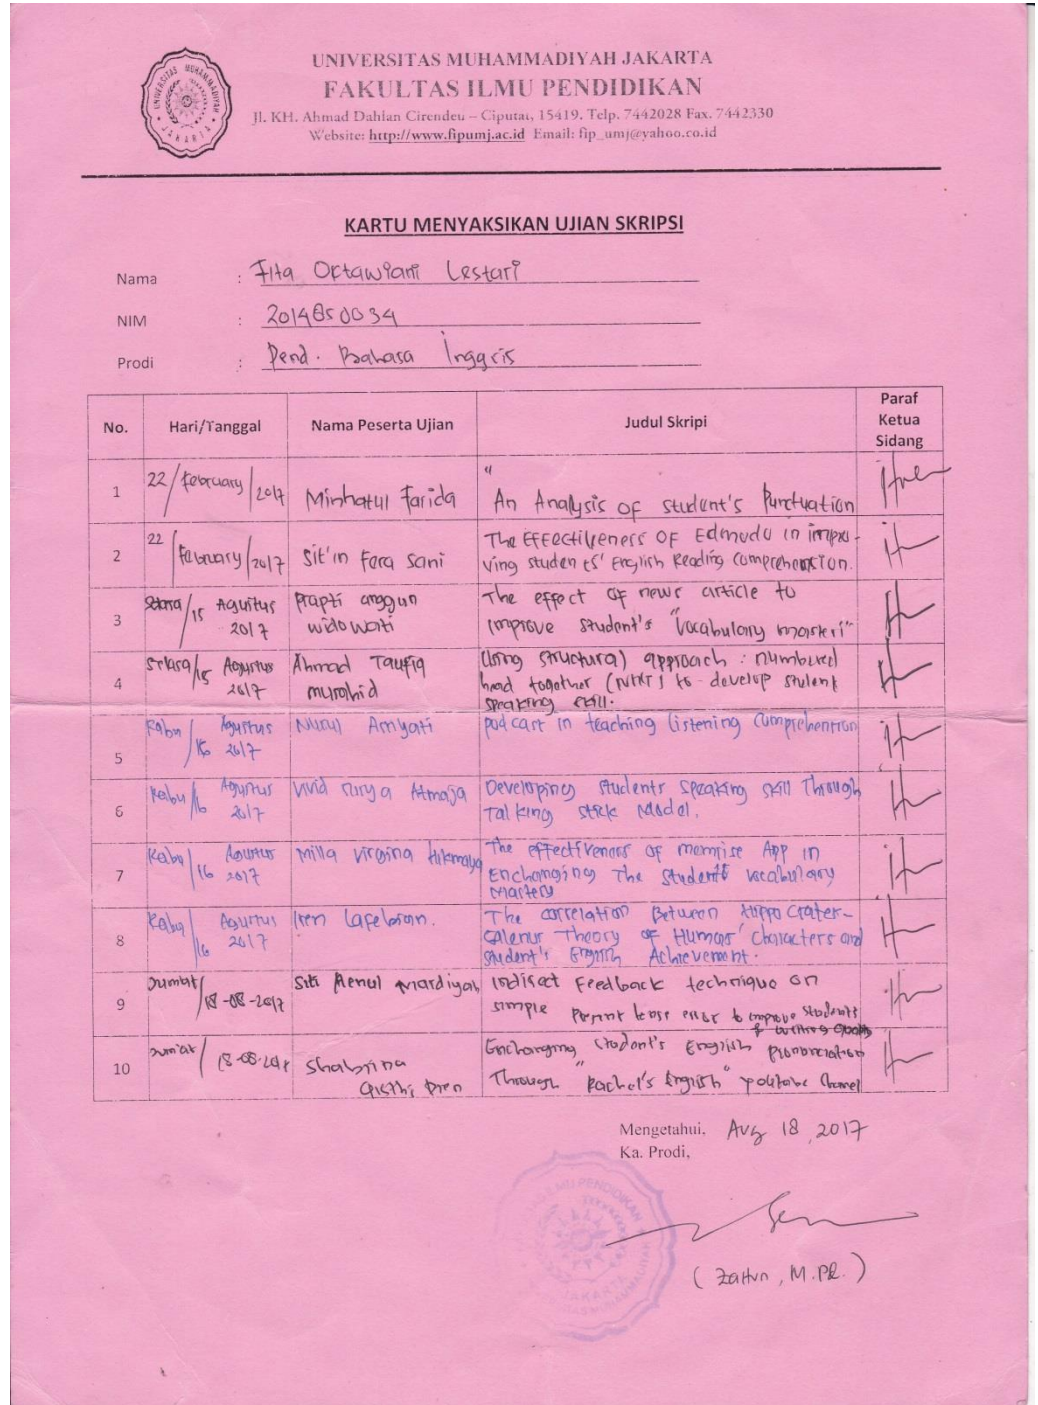 UNIVERSITAS MUHAMMADIYAH JAKARTA
FAKULTAS ILMU PENDIDIKAN
Jl. KH. Ahmad Dahlan Cirendeu – Ciputat, 15419. Telp. 7442028 Fax. 7442330
Website: http://www.fipumj.ac.id Email: fip_umj@yahoo.co.id
KARTU MENYAKSIKAN UJIAN SKRIPSI
Nama : Fita Oktawiani Lestari
NIM : 2014850034
Prodi : Pend. Bahasa Inggris
No. Hari/Tanggal Nama Peserta Ujian Judul Skripi Paraf Ketua Sidang
1 22/February/2017 Minhatul Farida "An Analysis of student's Punctuation
2 22/February/2017 Sit'in Fera Sani The Effectiveness of Edmodo in impro-
ving students' English Reading Comprehension.
3 Selasa/15 Agustus 2017 Prapti anggun widowati The effect of news article to
improve student's "Vocabulary mastery"
4 Selasa/15 Agustus 2017 Ahmad Taufiq Using structural approach : numbered
head together (NHT) to develop student
speaking skill.
5 Rabu/16 Agustus 2017 Nurul podcast in teaching listening comprehention
6 Rabu/16 Agustus 2017 Vivid Surya Atmaja Developing students speaking skill Through
Talking stick Model.
7 Rabu/16 Agustus 2017 Milla Virgina The effectiveness of memrise App in
Enchanging The students vocabulary
Mastery
8 Rabu/16 Agustus 2017 The correlation Between
Theory of Humans' Characters and
student's English Achievement.
9 Jumat/18-08-2017 Siti Mardiyah Indirect Feedback technique on
simple present tense error to improve students
writing quality
10 Jumat/18-08-2017 Shabrina Enchanging student's English pronunciation
Through "Rachel's English" youtube channel
Mengetahui, Aug 18, 2017
Ka. Prodi,
(Zaitun, M.Pd.)